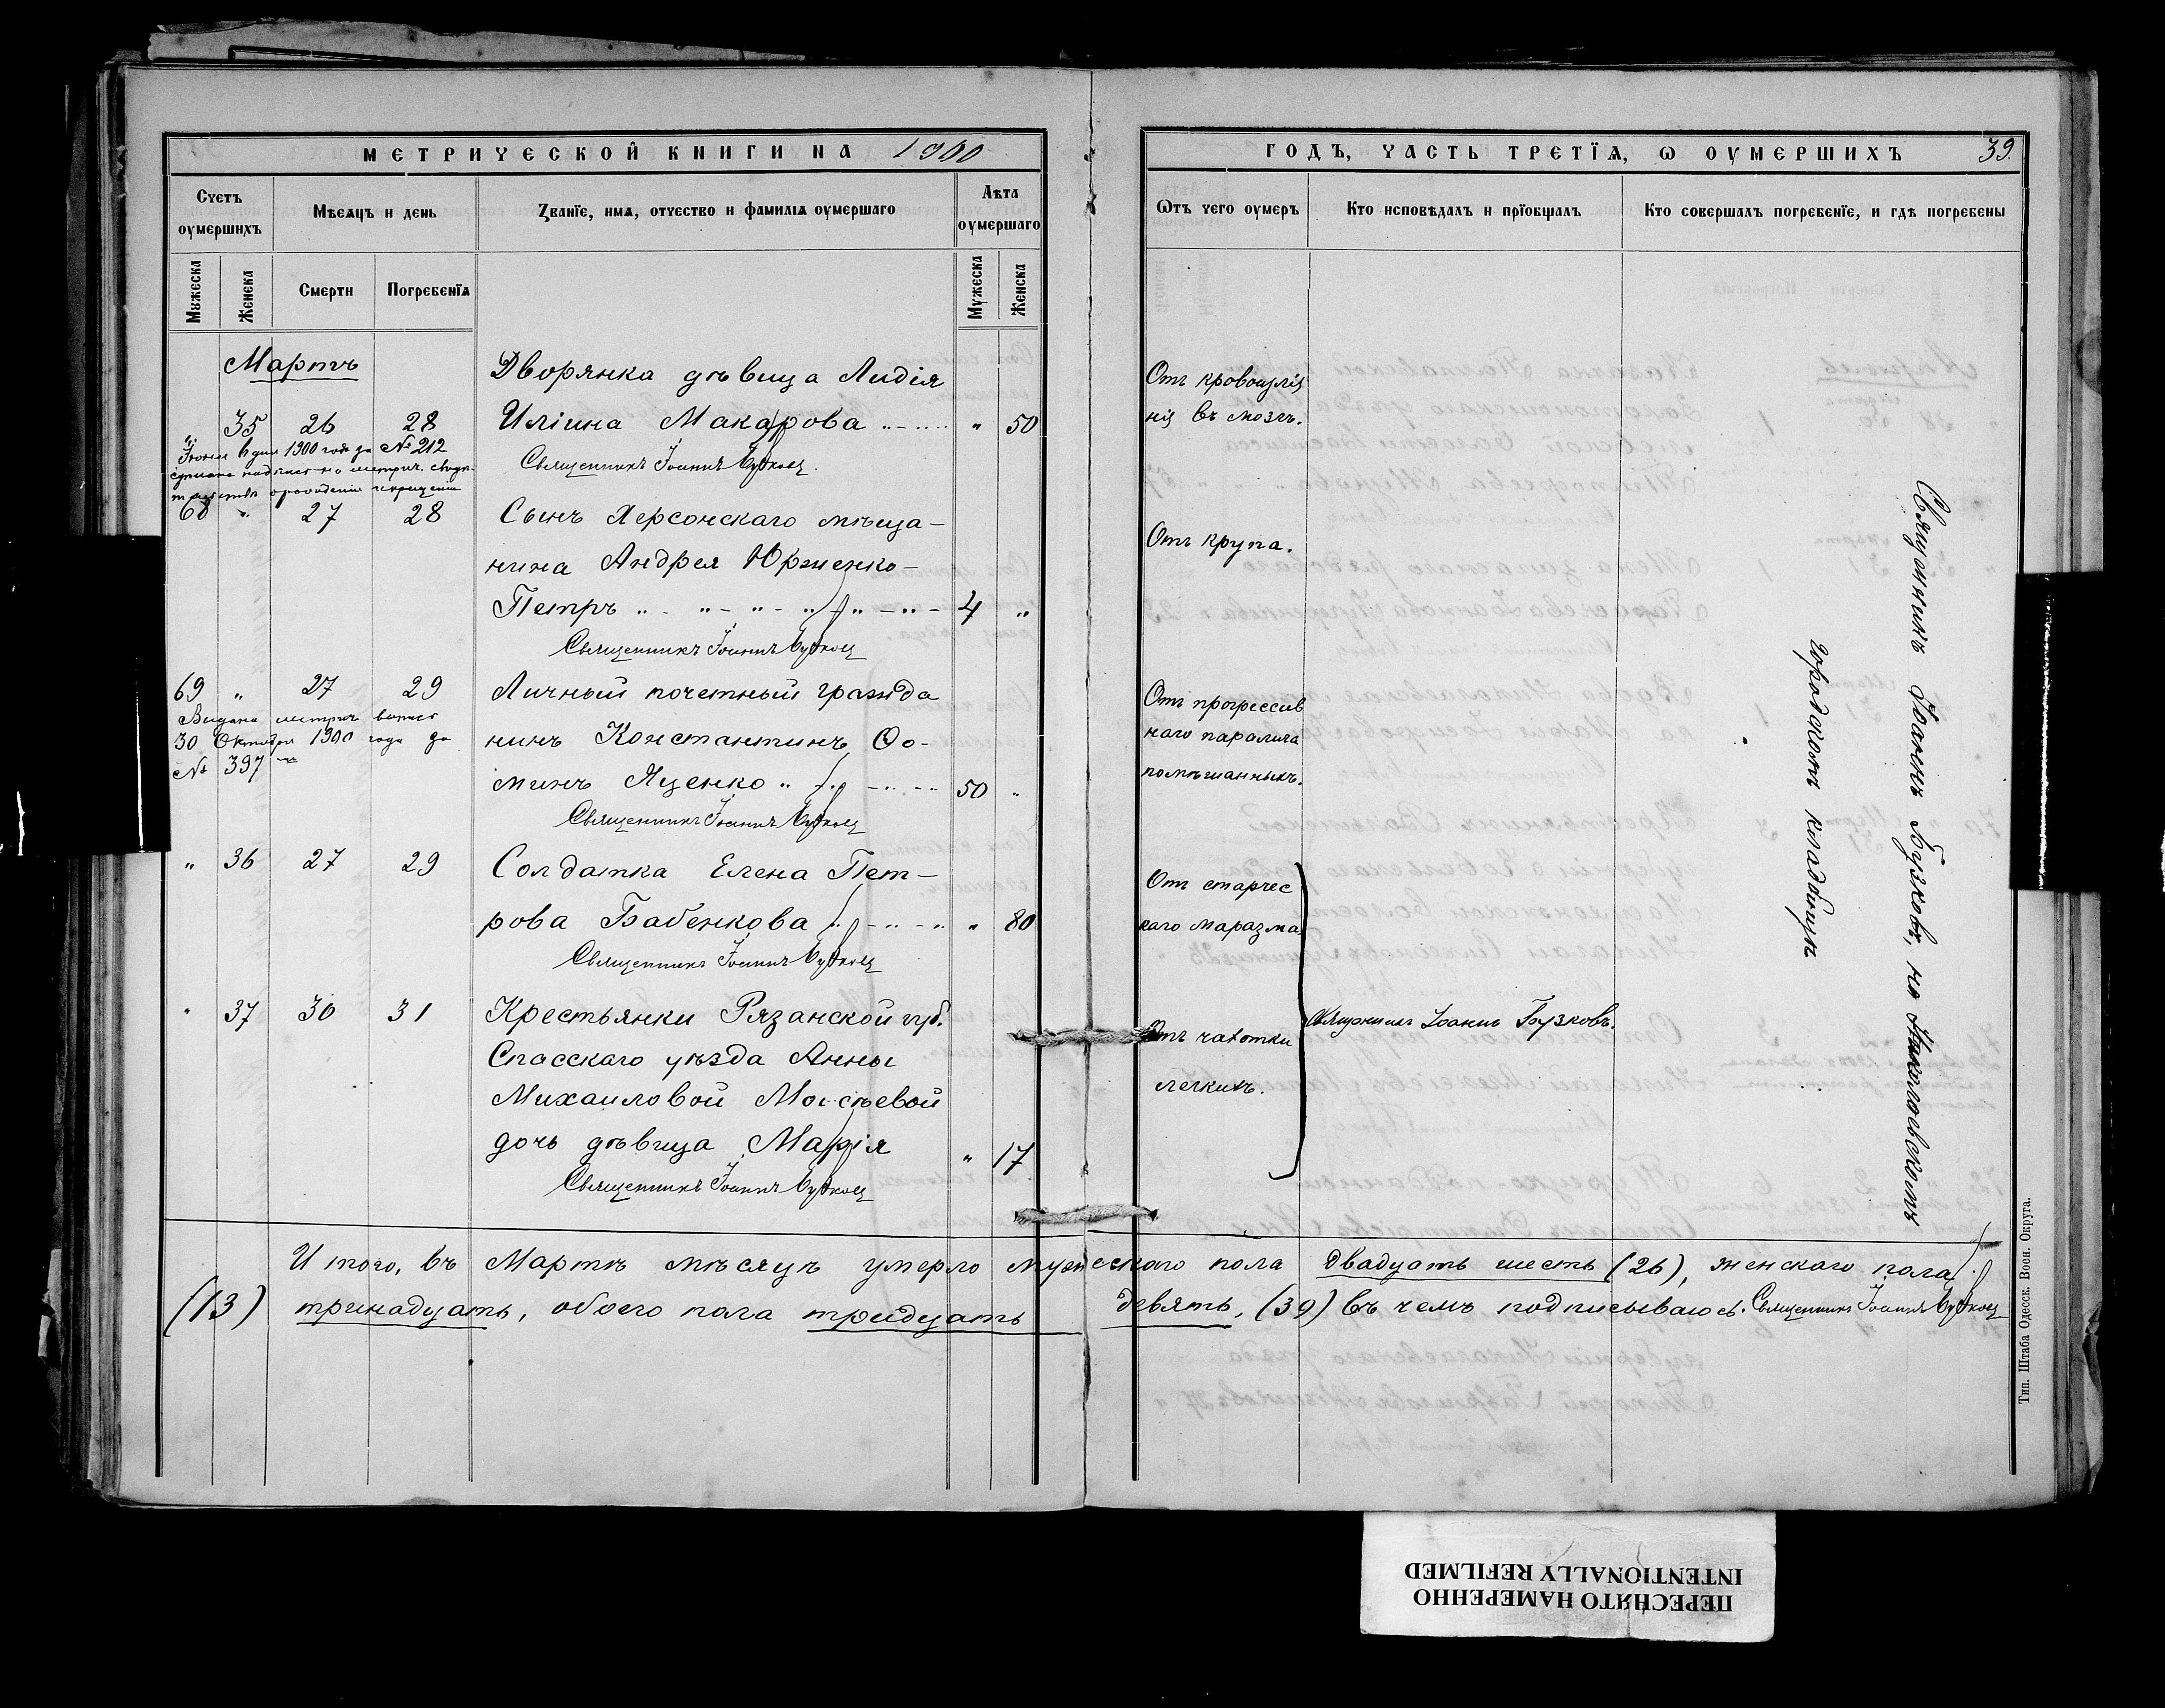 МЕТРИЧЕСКОЙ КНИГИ НА 1900
Счетъ оумершихъ
Мѣсяцъ и день
Званїе, имя, отчество и фамилїя оумершаго
Лѣта оумершаго
Мужеска
Женска
Смерти
Погребенїя
Мужеска
Женска
Мартъ
Дворянка дѣвица Лидія
" 35 26 28 Иліина Макарова " 50
Іюня 6 дня 1900 года за № 212
Священникъ Іоаннъ Бузковъ
68 " 27 28 Сынъ Херсонскаго мѣща-
нина Андрея Юрженко-
Петръ 4 "
Священникъ Іоаннъ Бузковъ
69 " 27 29 Личный почетный гражда
Выдана метрич. выпись
30 Октября 1900 года за
№ 397
нинъ Константинъ Ѳо-
минъ Яценко 50 "
Священникъ Іоаннъ Бузковъ
" 36 27 29 Солдатка Елена Пет-
рова Бабенкова " 80
Священникъ Іоаннъ Бузковъ
" 37 30 31 Крестьянки Рязанской губ.
Спасскаго уѣзда Анны
Михаиловой Моисѣевой
дочь дѣвица Марія " 17
Священникъ Іоаннъ Бузковъ
ГОДЪ, ЧАСТЬ ТРЕТЇЯ, Ѡ ОУМЕРШИХЪ 39
Ѿтъ чего оумеръ
Кто исповѣдалъ и прїобщалъ
Кто совершалъ погребенїе, и гдѣ погребены
Отъ кровоизлія
нія въ мозгъ.
Отъ крупа.
Отъ прогрессив
наго паралича
помѣшанныхъ.
Отъ старчес
каго маразма
Отъ чахотки
легкихъ.
Священникъ Іоаннъ Бузковъ.
Священникъ Іоаннъ Бузковъ, на Николаевскомъ
городскомъ кладбищѣ
Итого, въ Мартѣ мѣсяцѣ умерло мужескаго пола двадцать шесть (26), женскаго пола
(13) тринадцать, обоего пола тридцать девять, (39) въ чемъ подписываюсь. Священникъ Іоаннъ Бузковъ
Тип. Штаба Одесск. Воен. Округа.
ПЕРЕСНЯТО НАМЕРЕННО
INTENTIONALLY REFILMED